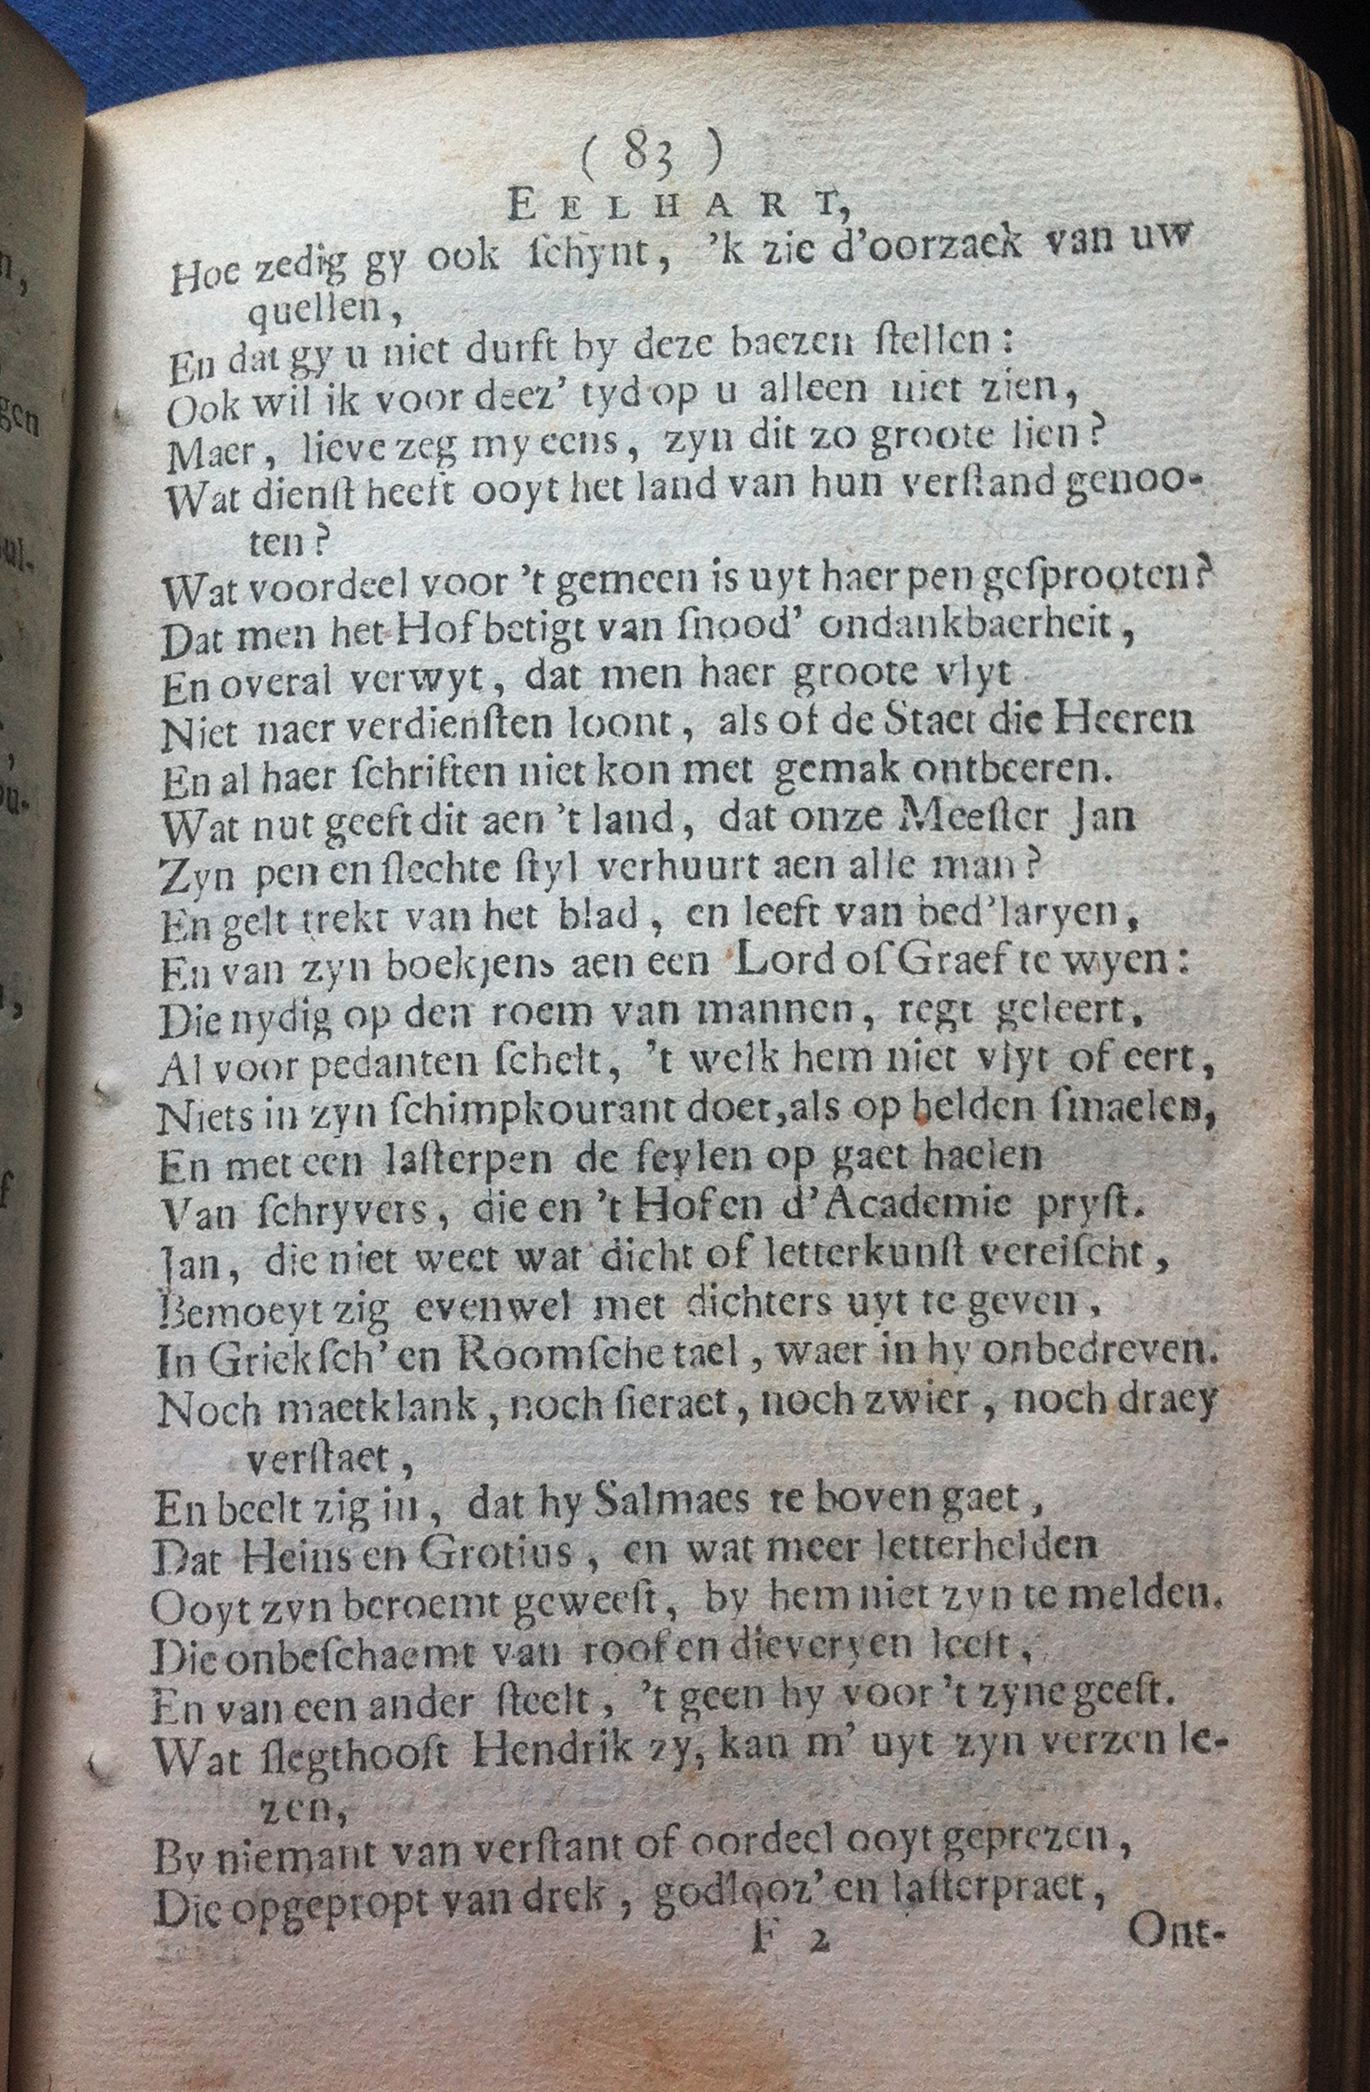 ( 83 )
EELHART,
Hoe zedig gy ook ſchynt, 'k zie d'oorzaek van uw
quellen,
En dat gy u niet durft by deze baezen ſtellen:
Ook wil ik voor deez' tyd op u alleen niet zien,
Maer, lieve zeg my eens, zyn dit zo groote lien?
Wat dienſt heeft ooyt het land van hun verſtand genoo-
ten?
Wat voordeel voor 't gemeen is uyt haer pen geſprooten?
Dat men het Hof betigt van ſnood' ondankbaerheit,
En overal verwyt, dat men haer groote vlyt
Niet naer verdienſten loont, als of de Staet die Heeren
En al haer ſchriften niet kon met gemak ontbeeren.
Wat nut geeft dit aen 't land, dat onze Meeſter Jan
Zyn pen en ſlechte ſtyl verhuurt aen alle man?
En gelt trekt van het blad, en leeft van bed'laryen,
En van zyn boekjens aen een Lord of Graef te wyen:
Die nydig op den roem van mannen, regt geleert,
Al voor pedanten ſchelt, 't welk hem niet vlyt of eert,
Niets in zyn ſchimpkourant doet, als op helden ſmaelen,
En met een laſterpen de feylen op gaet haelen
Van ſchryvers, die en 't Hof en d'Academie pryſt.
Jan, die niet weet wat dicht of letterkunſt vereiſcht,
Bemoeyt zig evenwel met dichters uyt te geven,
In Griekſch' en Roomſche tael, waer in hy onbedreven.
Noch maetklank, noch ſieraet, noch zwier, noch draey
verſtaet,
En beelt zig in, dat hy Salmaes te boven gaet,
Dat Heins en Grotius, en wat meer letterhelden
Ooyt zyn beroemt geweeſt, by hem niet zyn te melden.
Die onbeſchaemt van roof en dieveryen leeft,
En van een ander ſteelt, 't geen hy voor 't zyne geeft.
Wat ſlegthooft Hendrik zy, kan m' uyt zyn verzen le-
zen,
By niemant van verſtant of oordeel ooyt geprezen,
Die opgepropt van drek, godlooz' en laſterpraet,
F 2 Ont-